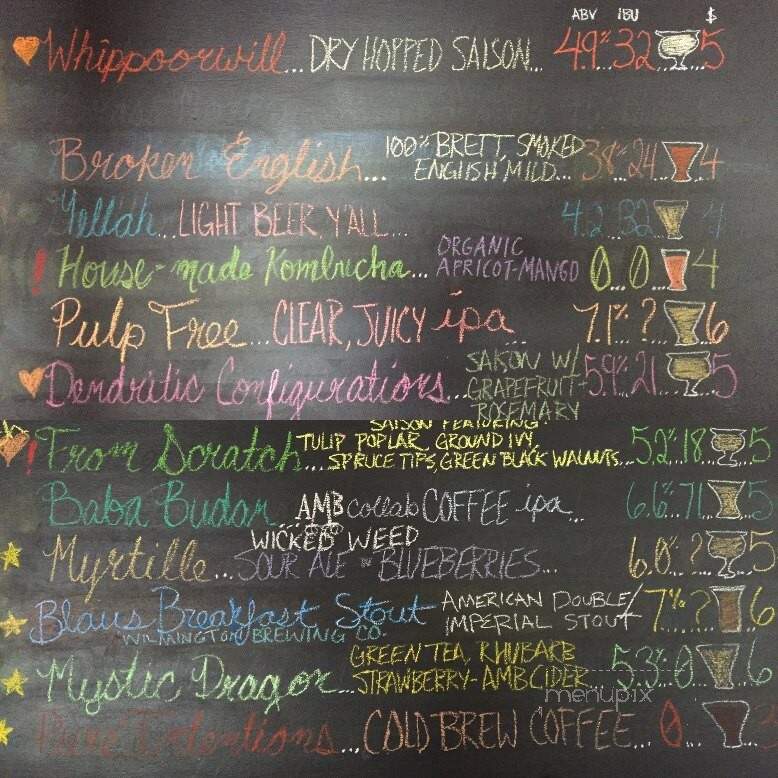 ABV IBU $
Whippoorwill... DRY HOPPED SAISON... 4.9% 32 ... 5
Broken English... 100% BRETT, SMOKED ENGLISH MILD... 3.8% 24 ... 4
Yellah... LIGHT BEER, Y'ALL... 4.2 ... 32 ... 4
! House-made Kombucha... ORGANIC APRICOT-MANGO 0 ... 0 ... 4
Pulp Free... CLEAR, JUICY ipa ... 7.1% ... ? ... 6
Dendritic Configurations... SAISON W/ GRAPEFRUIT + ROSEMARY 5.9% 21 ... 5
! From Scratch... SAISON FEATURING: TULIP POPLAR, GROUND IVY, SPRUCE TIPS, GREEN BLACK WALNUTS... 5.2% 18 ... 5
Baba Budan... AMB collab COFFEE ipa... 6.6% 71 ... 5
WICKED WEED
Myrtille... SOUR ALE W/ BLUEBERRIES... 6.0% ? ... 5
Blaus Breakfast Stout AMERICAN DOUBLE/ IMPERIAL STOUT 7% ? ... 6
WILMINGTON BREWING CO.
Mystic Dragon... GREEN TEA, RHUBARB STRAWBERRY - AMB CIDER... 5.3% 0 ... 6
menupix
Pure Intentions... COLD BREW COFFEE... 0 ... 3